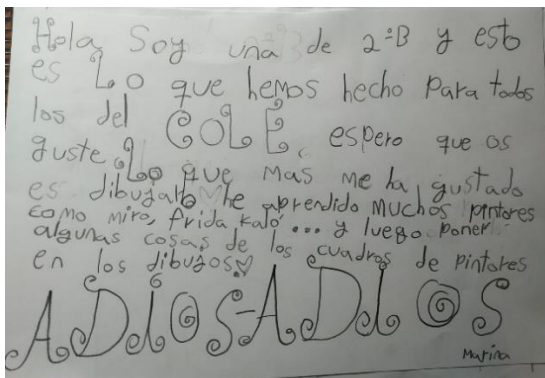 Hola, Soy una de 2ºB y esto
es Lo que hemos hecho Para todos
los del COLE, espero que os
guste. Lo que mas me ha gustado
es dibujarlo ♡ he aprendido muchos pintores
como miro, frida kaló... y luego poner
algunas cosas de los cuadros de pintores
en los dibujos♡.
ADIOS-ADIOS
Marina